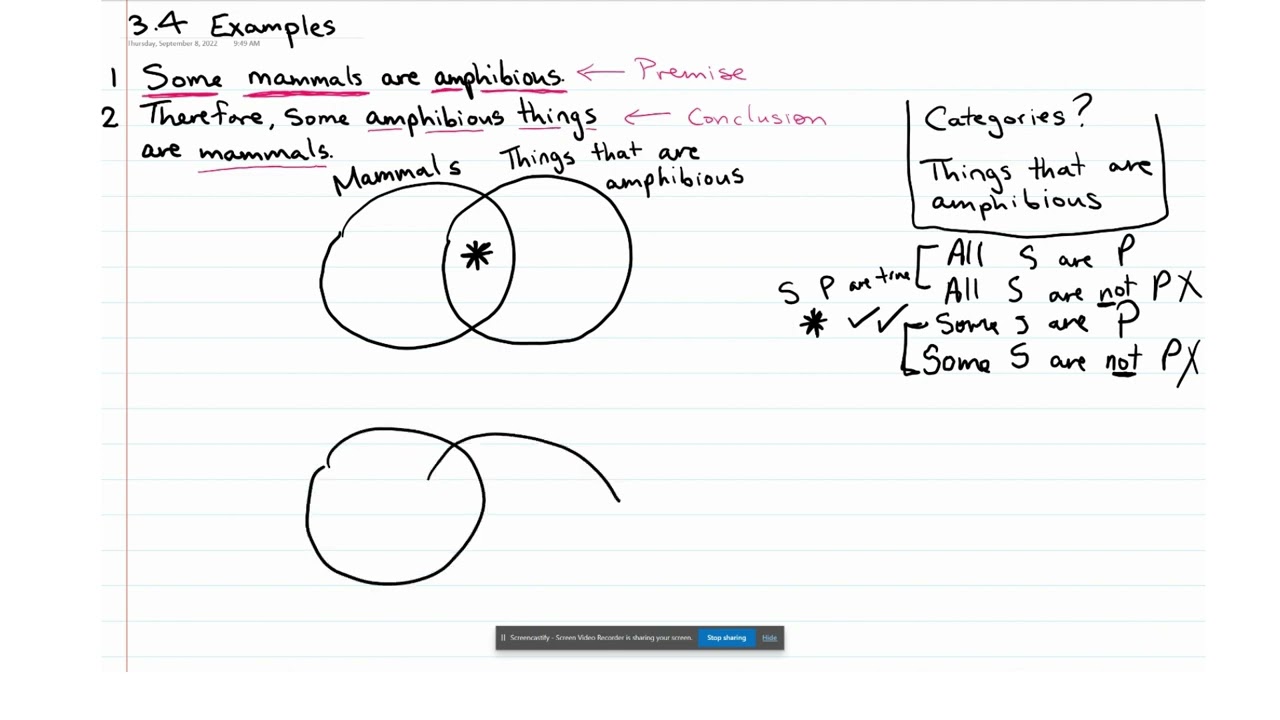 3.4 Examples
Thursday, September 8, 2022 9:49 AM
1 Some mammals are amphibious. ← Premise
2 Therefore, Some amphibious things ← Conclusion
are mammals.
Mammals
Things that are
amphibious
Categories?
Things that are
amphibious
All S are P
S P are true
All S are not P X
* ✓✓ Some S are P
Some S are not P X
Screencastify - Screen Video Recorder is sharing your screen. Stop sharing Hide